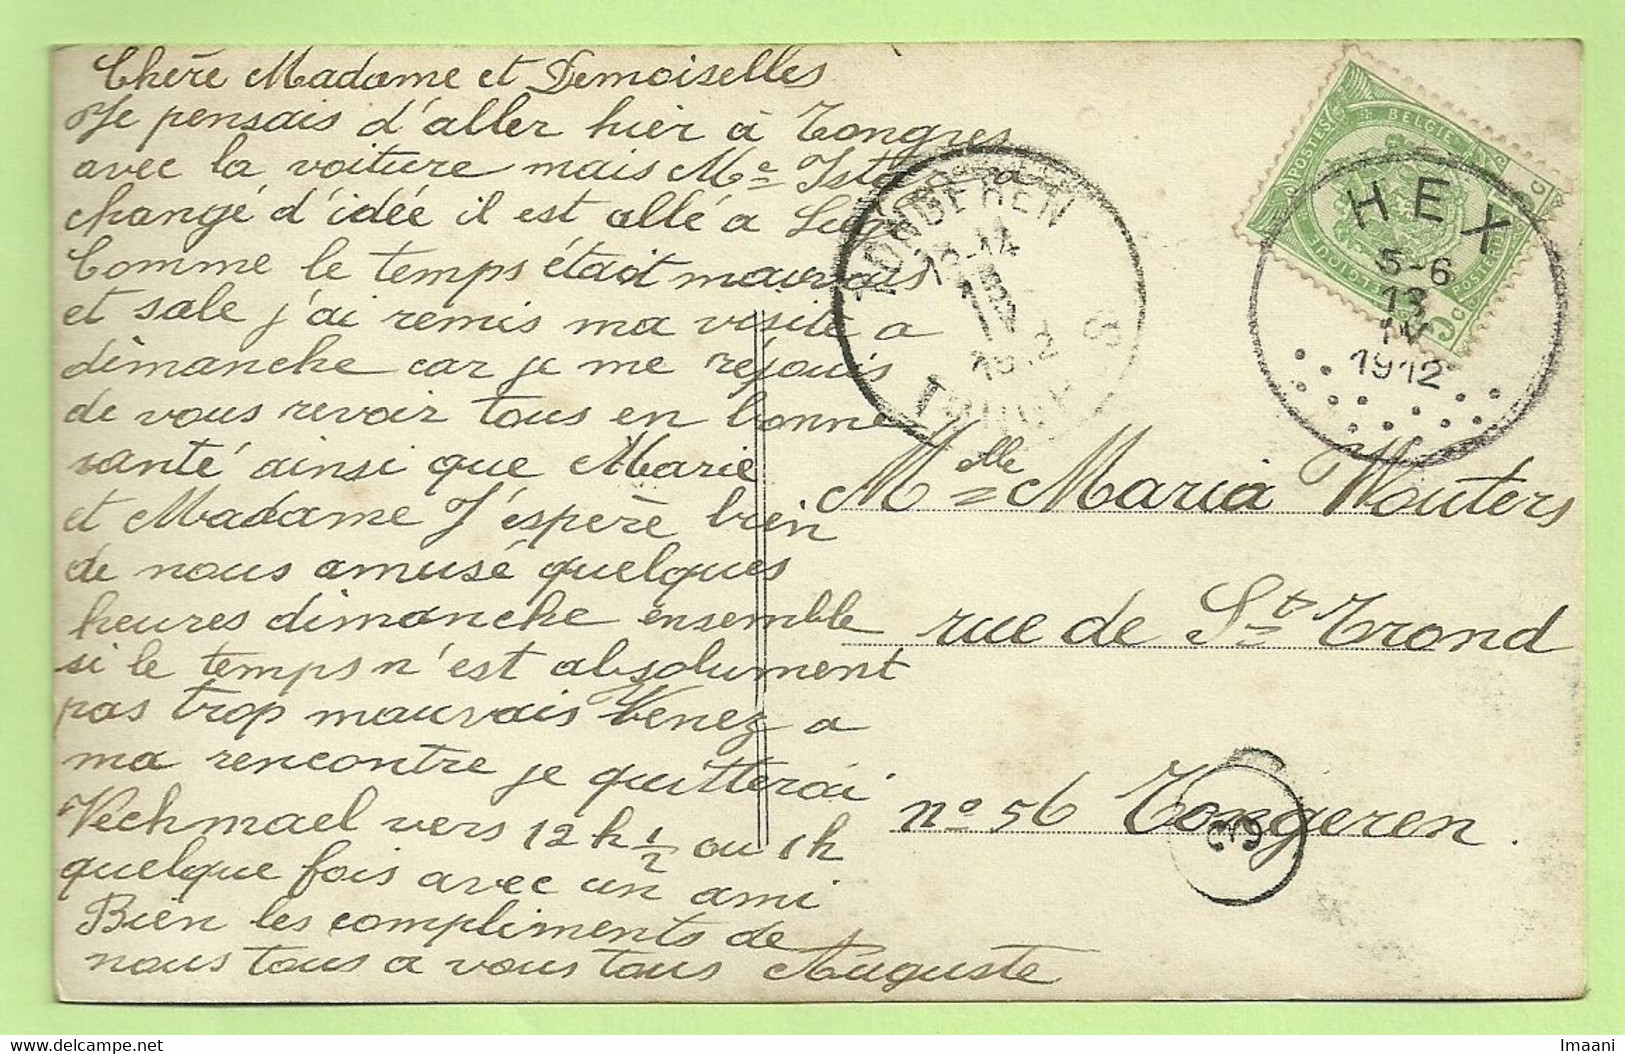 Chère Madame et Demoiselles
Je pensais d'aller hier à Tongres
avec la voiture mais Mr Ista a
changé d'idée il est allé a Liége
Comme le temps étáit mauvais
et sale j'ai remis ma visite a
dimanche car je me réjouis
de vous revoir tous en bonne
santé ainsi que Marie
et Madame J'éspère bien
de nous amusé quelques
heures dimanche ensemble
si le temps n'est absolument
pas trop mauvais Venez a
ma rencontre je quitterai
Vechmael vers 12 h 1/2 ou 1h
quelque fois avec un ami
Bien les compliments de
nous tous a vous tous Auguste
TONGEREN
13-14
IV
1912
TONGRES
BELGIE
POSTES
POSTERIJEN
BELGIQUE
5 C
HEX
5-6
13
IV
1912
Melle Maria Wouters
rue de St Trond
no 56 Tongeren.
3
Imaani